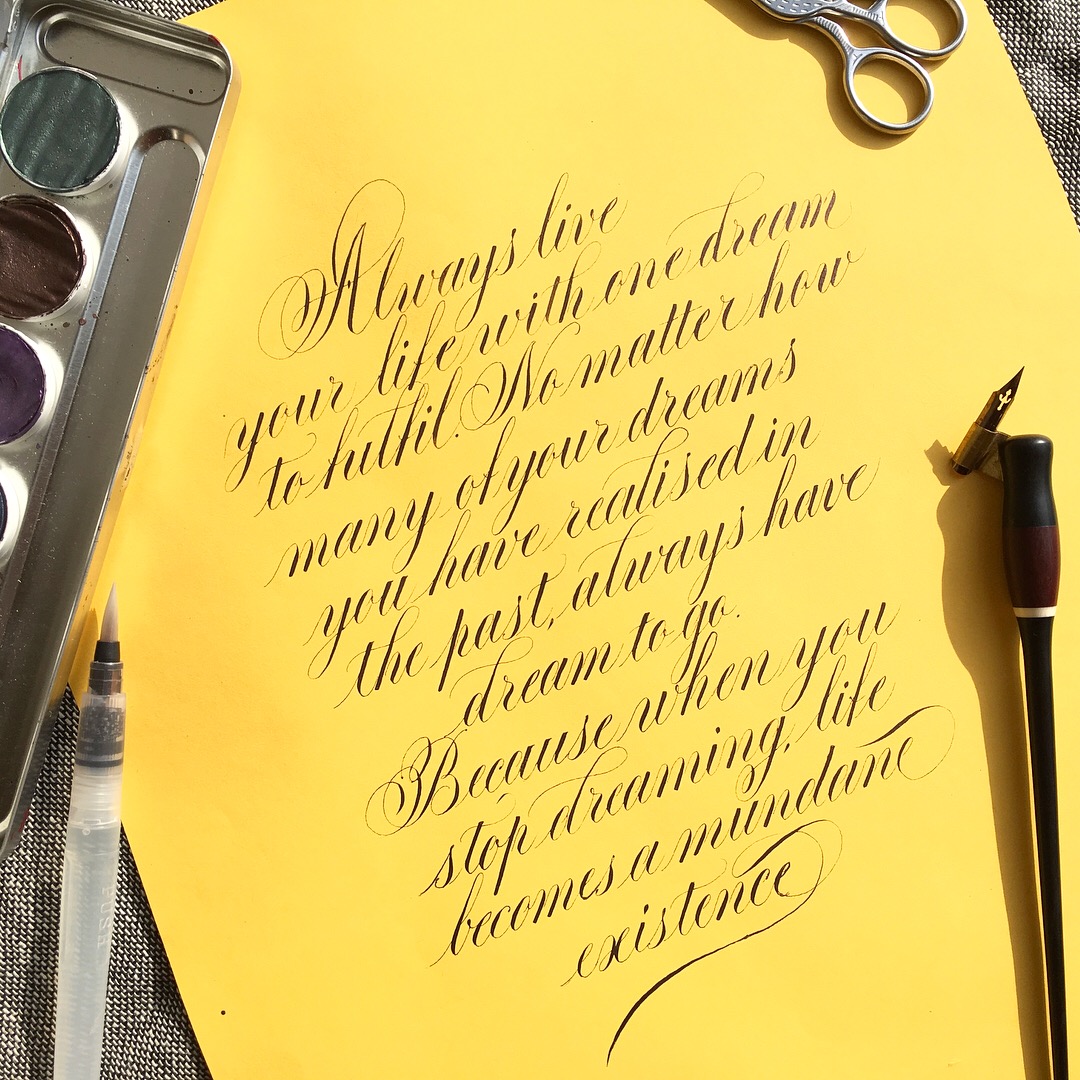 Always live
your life with one dream
to fulfil. No matter how
many of your dreams
you have realised in
the past, always have
dream to go.
Because when you
stop dreaming, life
becomes a mundane
existence